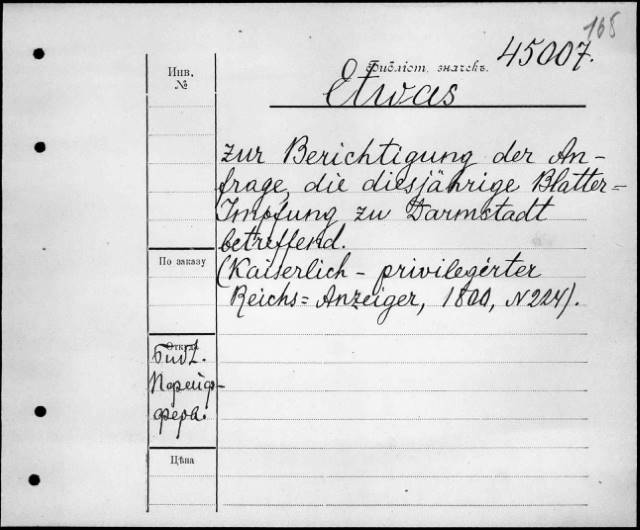 168
45007.
Инв. №
Библіот. значекъ.
Etwas
zur Berichtigung der An-
frage, die diesjährige Blatter=
Impfung zu Darmstadt
betreffend.
По заказу
(Kaiserlich - privilegirter
Reichs= Anzeiger, 1800, N 224).
Откуда
Библ.
Порейф-
фера.
Цѣна